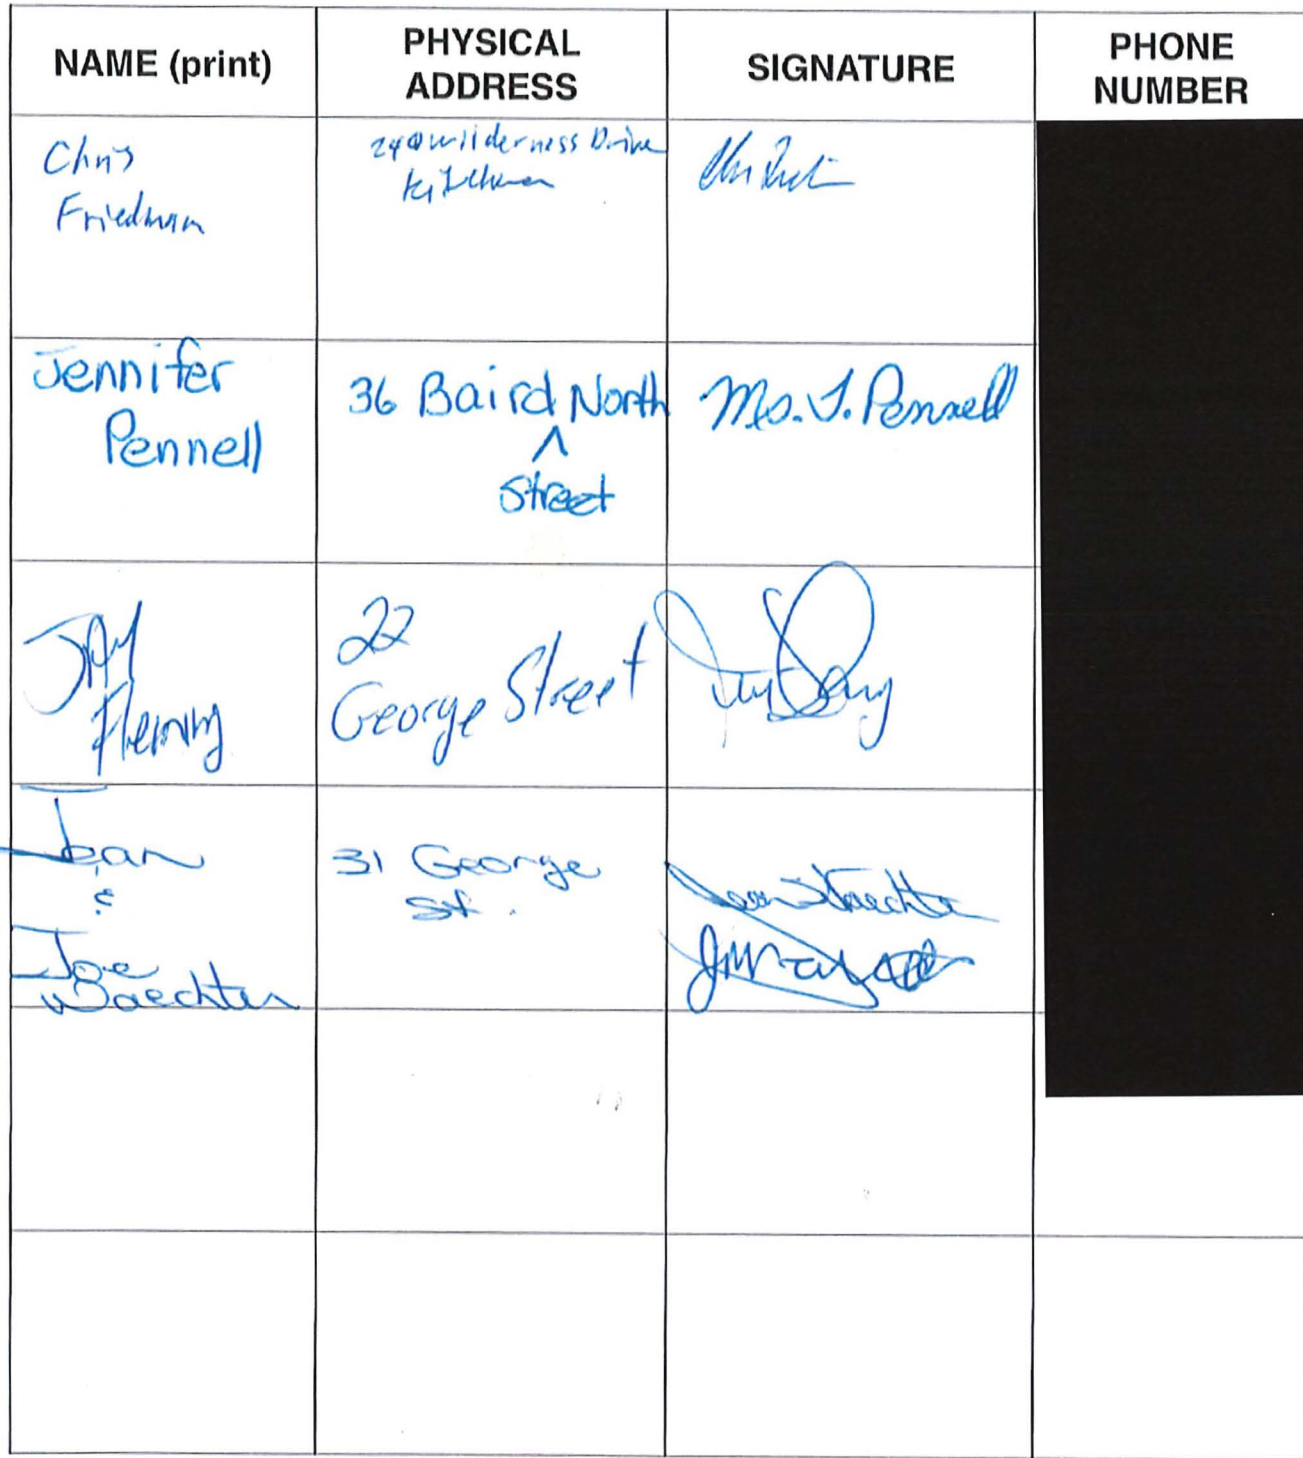 NAME (print)
PHYSICAL
ADDRESS
SIGNATURE
PHONE
NUMBER
Chris
Friedman
Wilderness Drive
Kitchener
Jennifer
Pennell
36 Baird North
^
Street
Ms. J. Pennell
Fleming
22
George Street
Jean
&
Joe
Waechter
31 George
St.
Jean Waechter